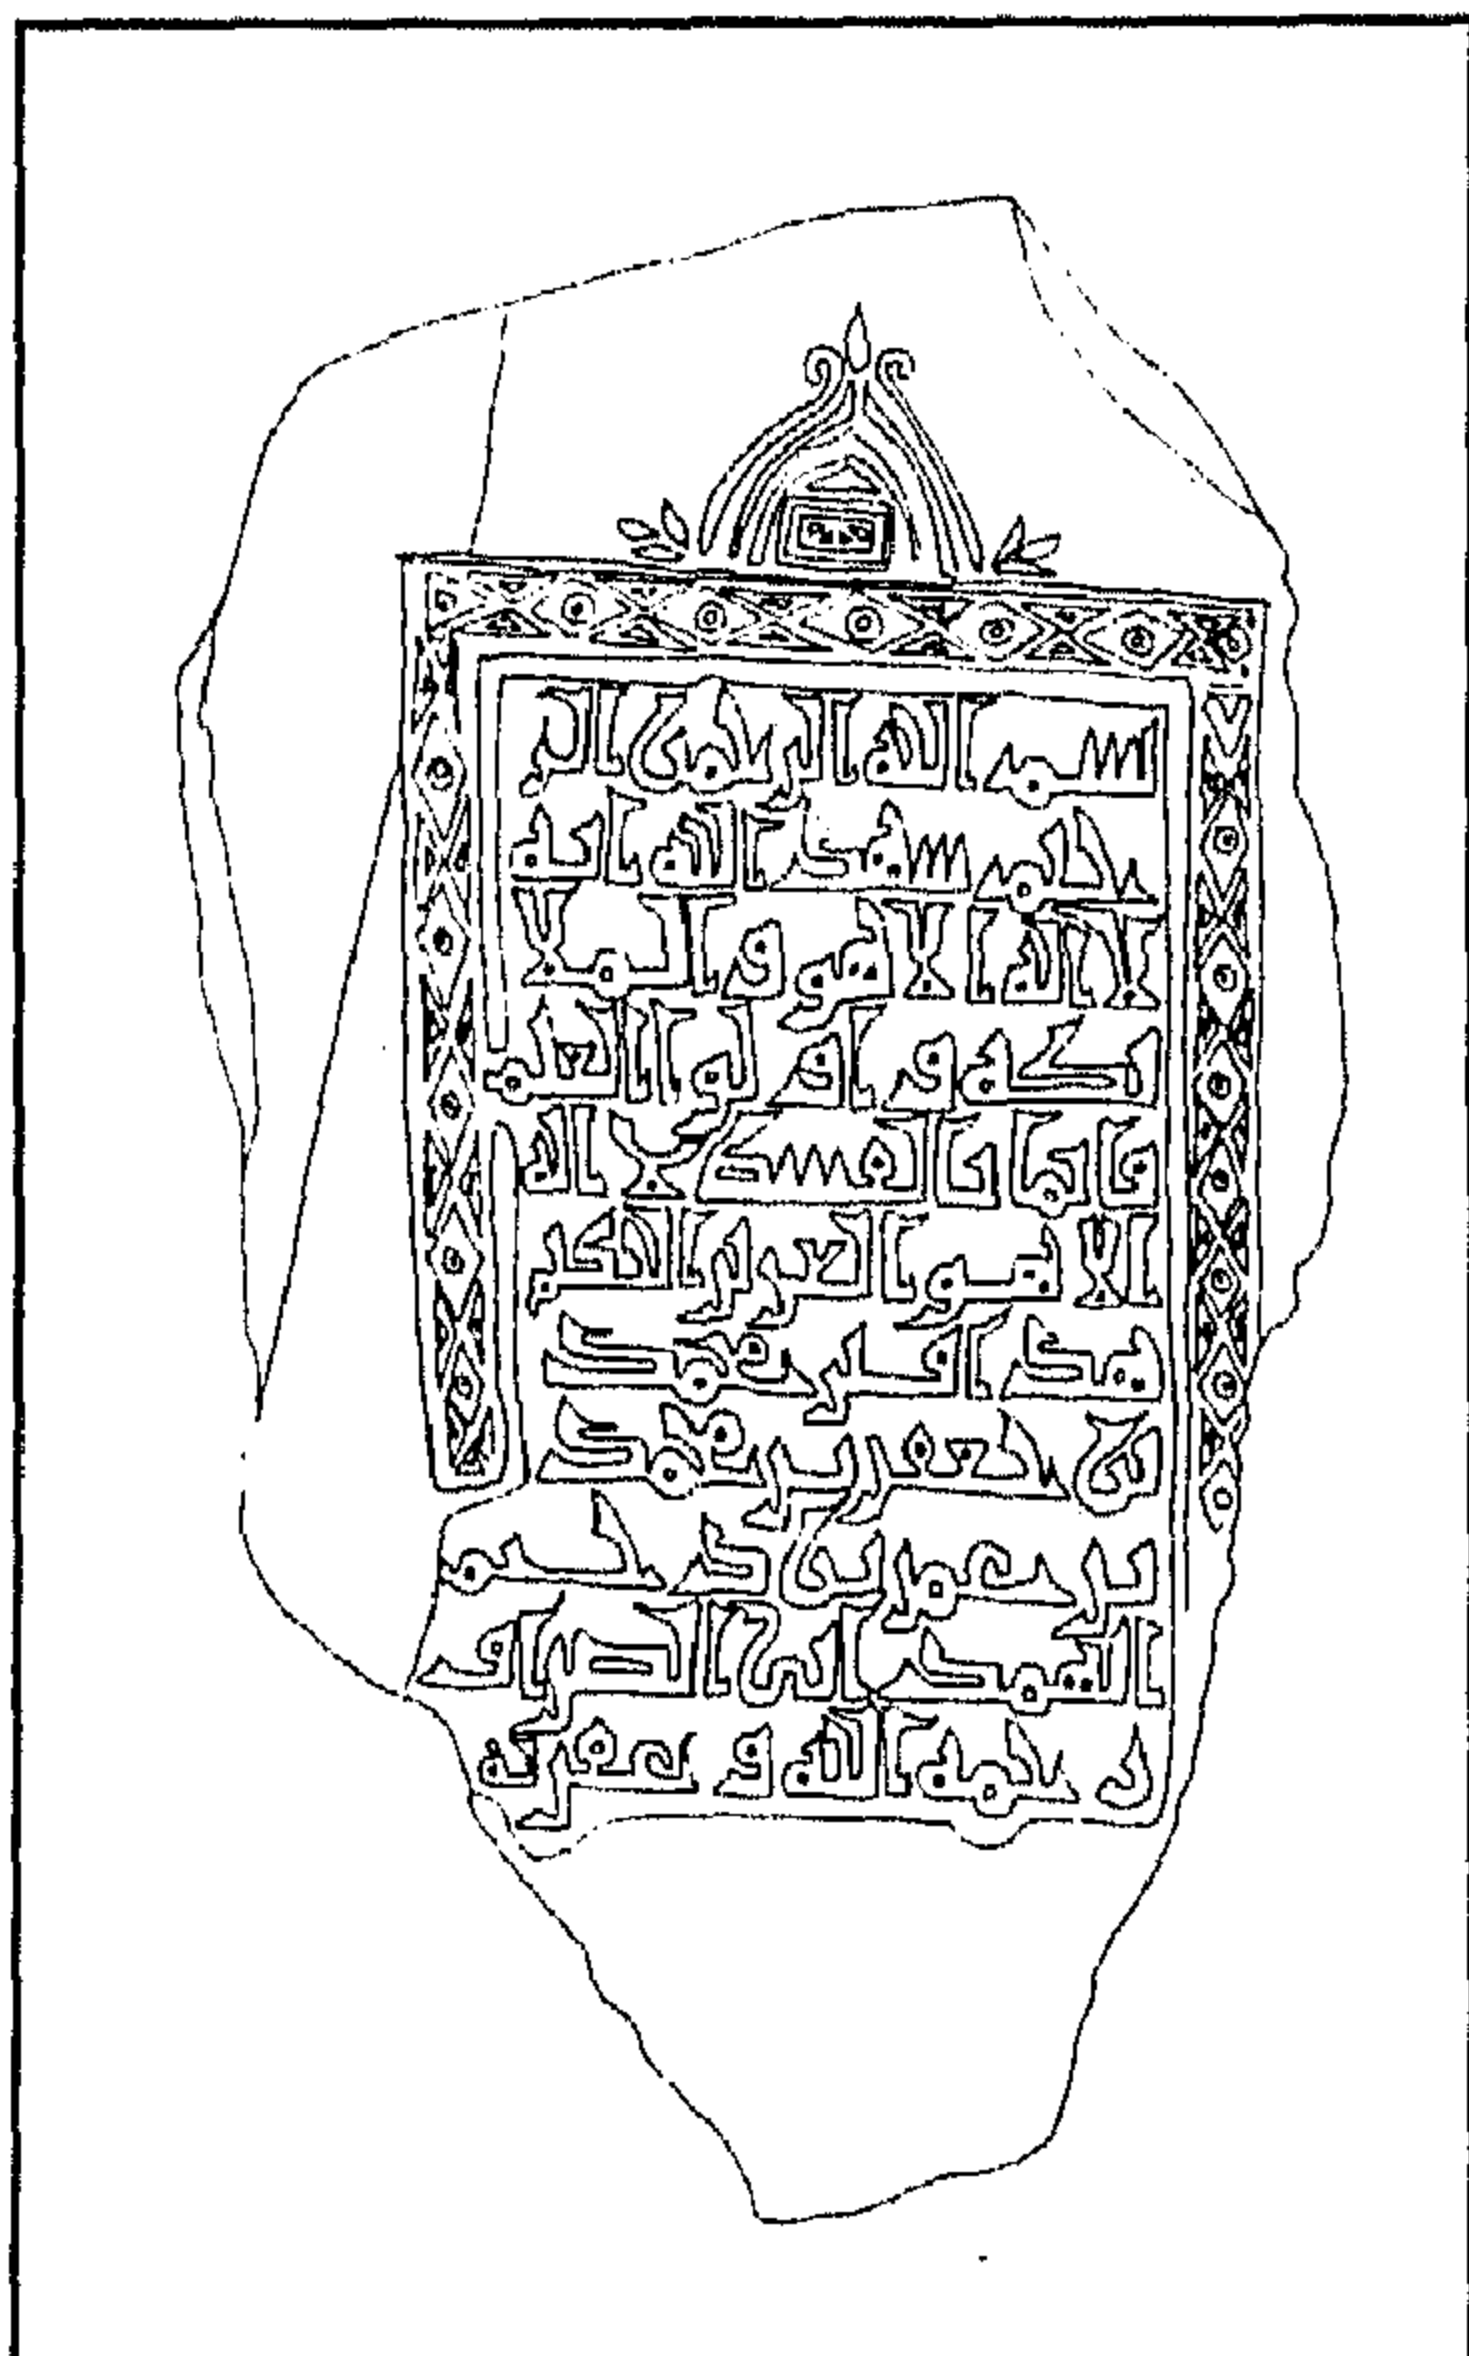 بسم الله الرحمن الر
حيم شهد الله انه
لا اله الا هو و الملا
ئكة و اولوا العلم
قائما بالقسط لا اله
الا هو العزيز الحكيم
هذا قبر محمد
بن جعفر بن محمد
بن
رحمه الله و غفر له